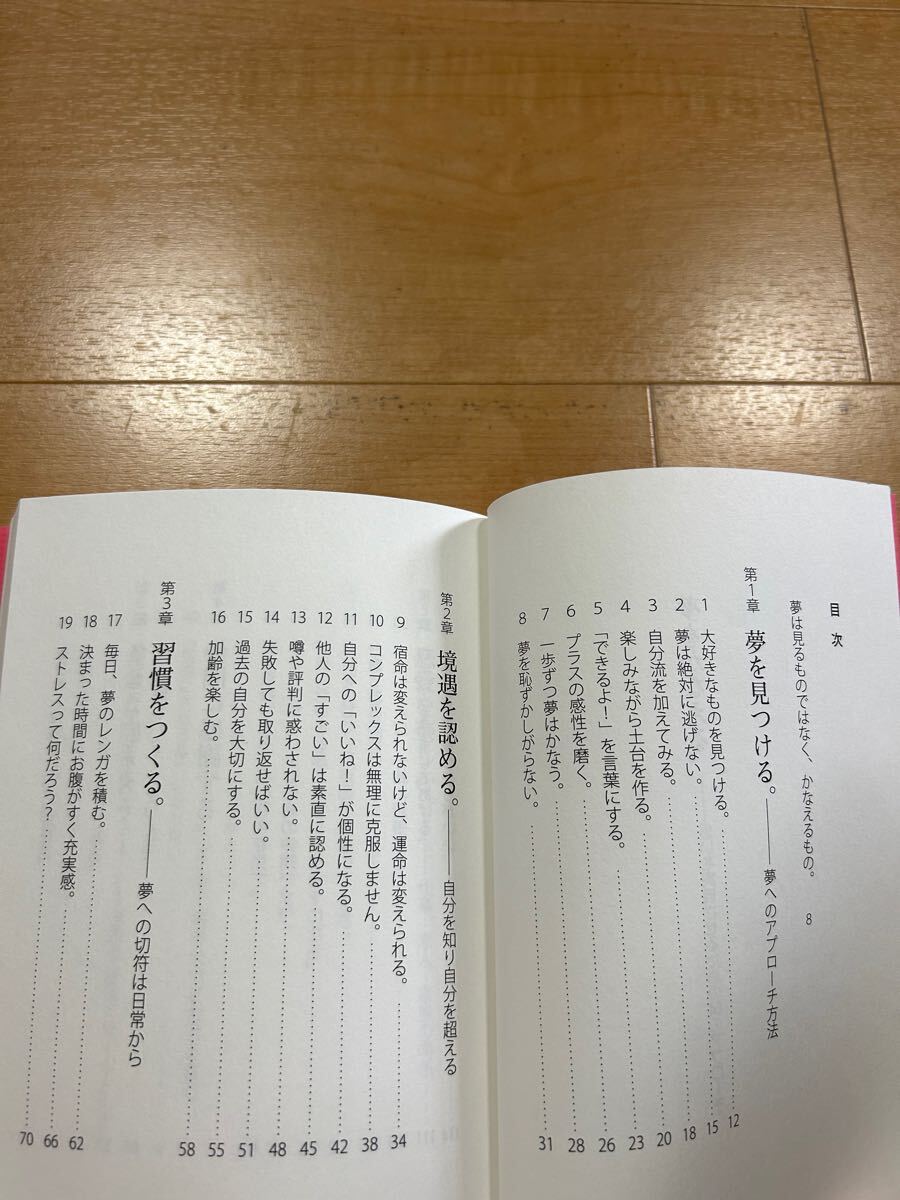 目次
夢は見るものではなく、かなえるもの。 8
第1章 夢を見つける。――夢へのアプローチ方法
1 大好きなものを見つける。…… 12
2 夢は絶対に逃げない。…… 15
3 自分流を加えてみる。…… 18
4 楽しみながら土台を作る。…… 20
5 「できるよ！」を言葉にする。…… 23
6 プラスの感性を磨く。…… 26
7 一歩ずつ夢はかなう。…… 28
8 夢を恥ずかしがらない。…… 31
第2章 境遇を認める。――自分を知り自分を超える
9 宿命は変えられないけど、運命は変えられる。…… 34
10 コンプレックスは無理に克服しません。…… 38
11 自分への「いいね！」が個性になる。…… 42
12 他人の「すごい」は素直に認める。…… 45
13 噂や評判に惑わされない。…… 48
14 失敗しても取り返せばいい。…… 51
15 過去の自分を大切にする。…… 55
16 加齢を楽しむ。…… 58
第3章 習慣をつくる。――夢への切符は日常から
17 毎日、夢のレンガを積む。…… 62
18 決まった時間にお腹がすく充実感。…… 66
19 ストレスって何だろう？…… 70